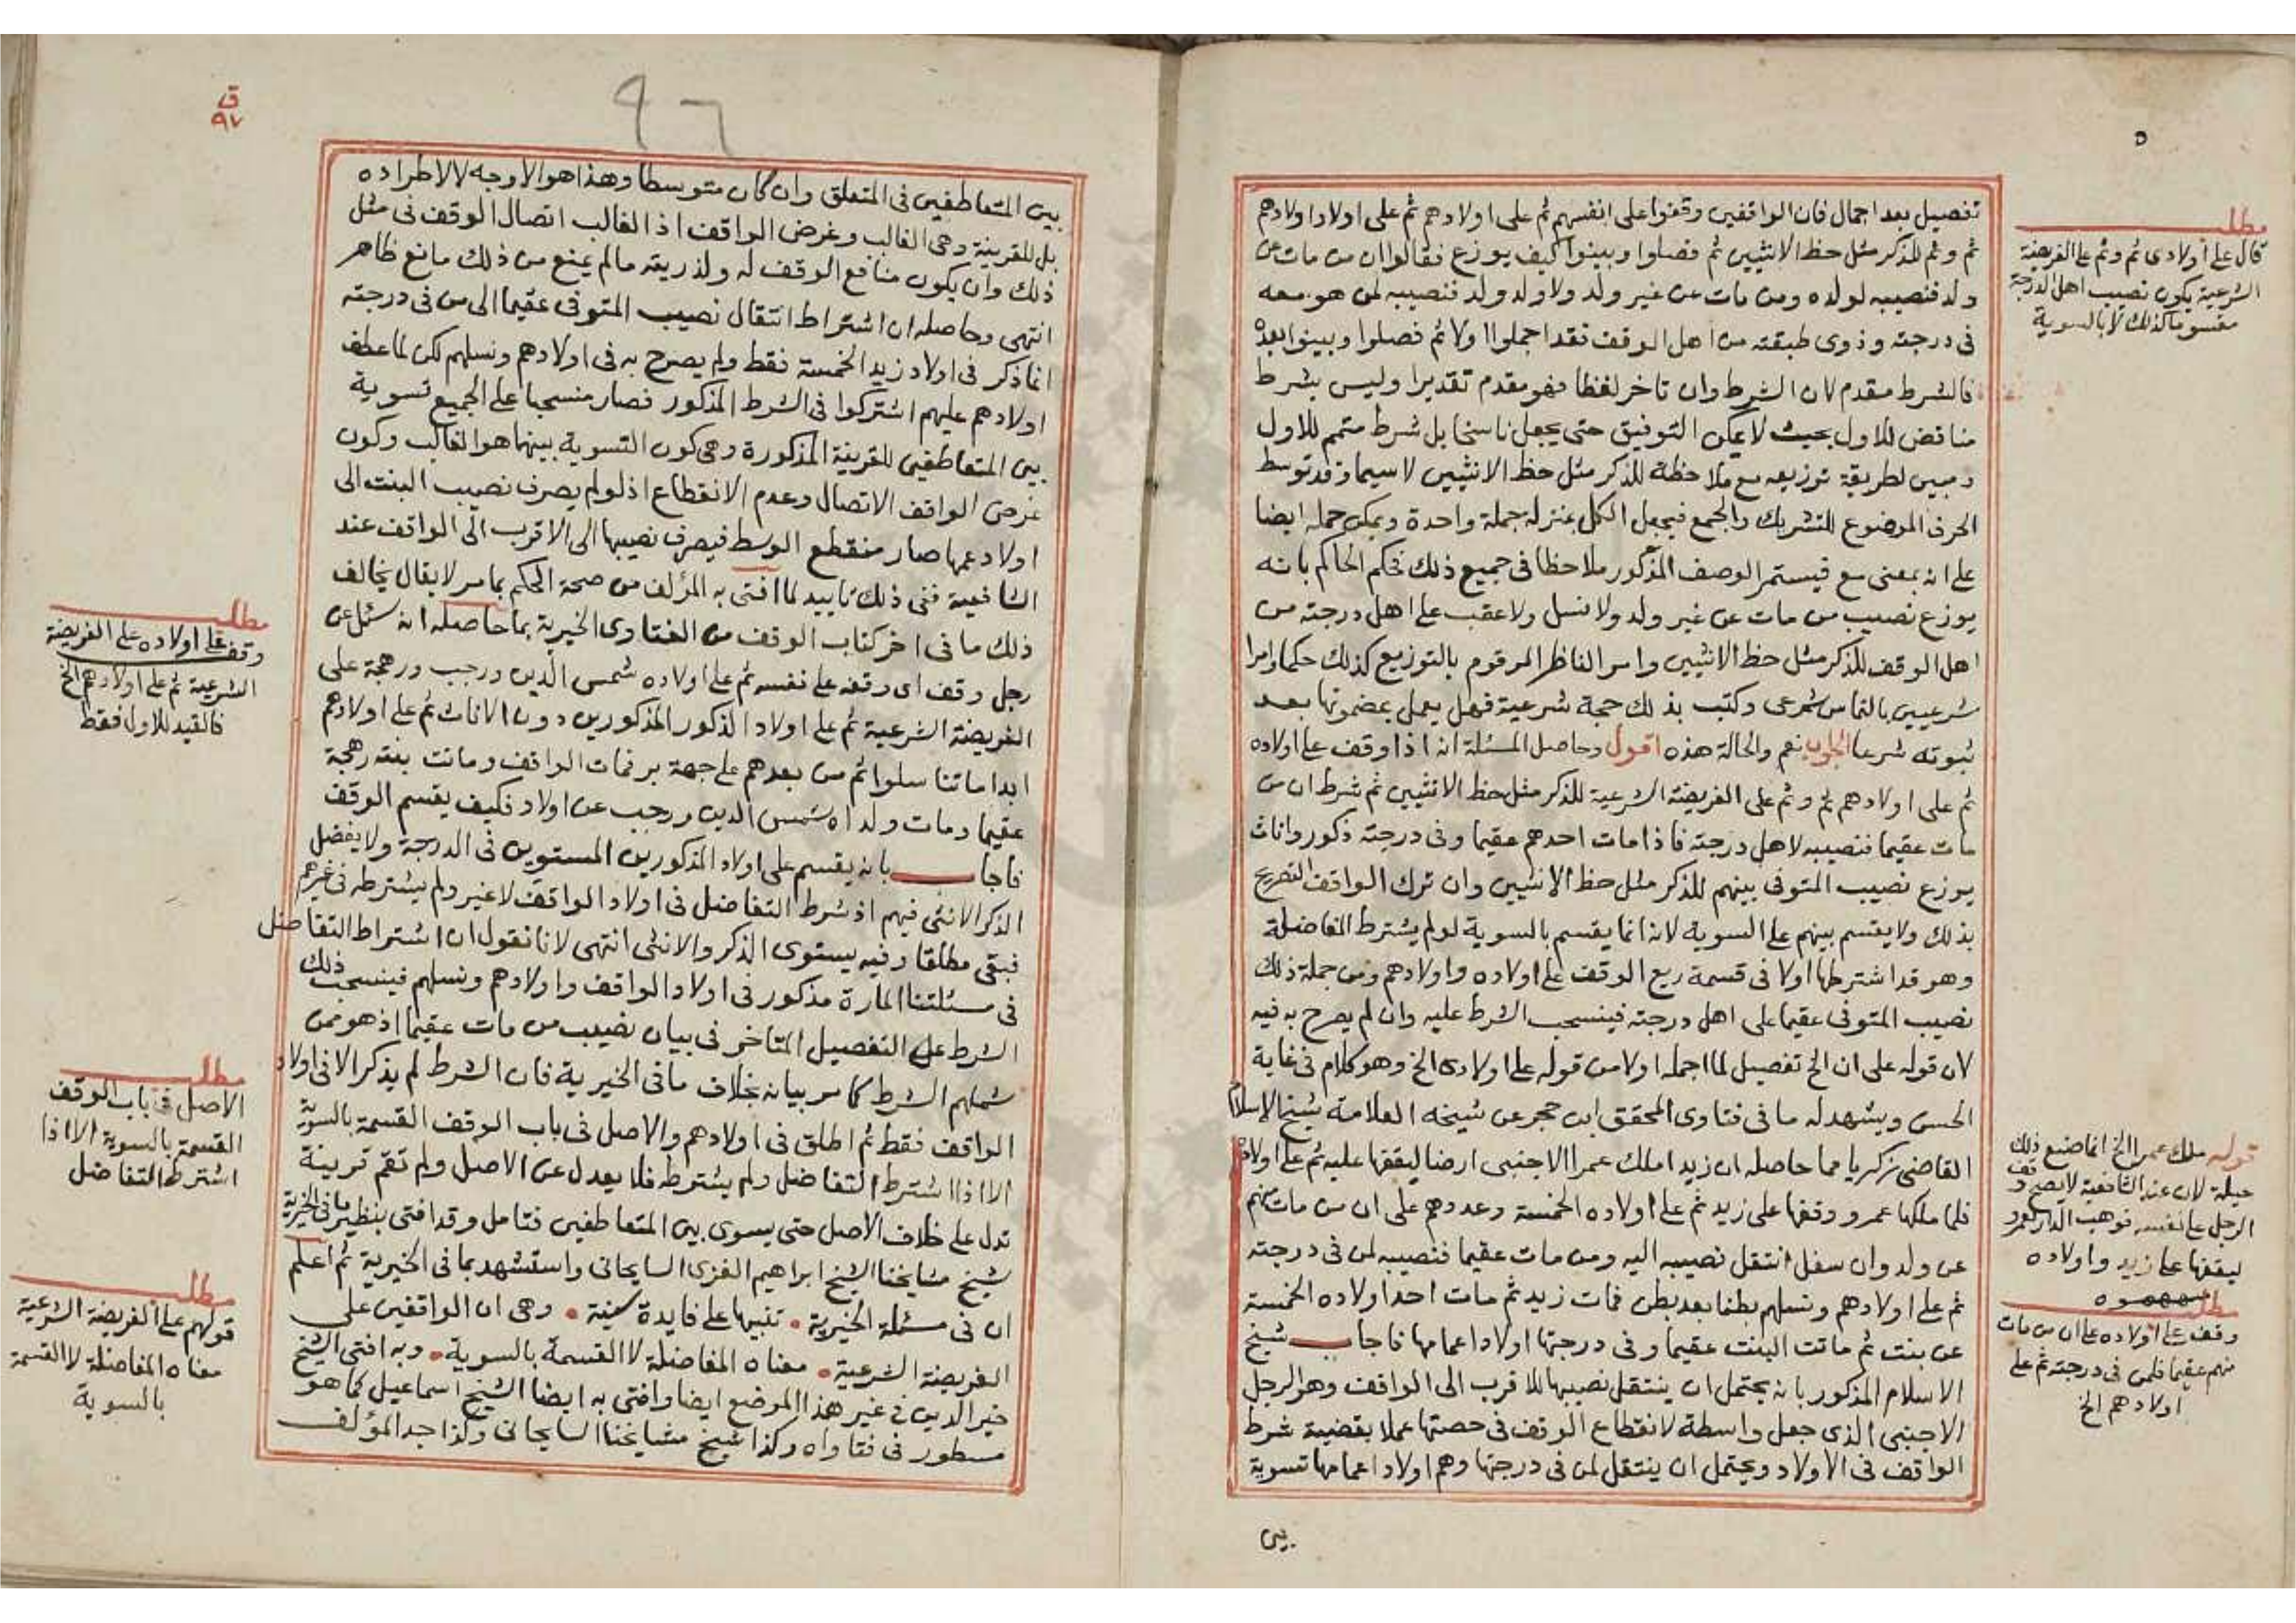 تفصيل بعد اجمال فان الواقفين وقفوا على انفسهم ثم على اولادهم ثم على اولاد اولادهم
ثم وثم للذكر مثل حظ الانثيين ثم فصلوا وبينوا كيف يوزع فقالوا ان من مات عن
ولد فنصيبه لولده ومن مات عن غير ولد ولا ولد ولد فنصيبه لمن هو معه
فى درجته وذوى طبقته من اهل الوقف فقد اجملوا اولا ثم فصلوا وبينوا بعده
فالشرط مقدم لان الشرط وان تاخر لفظا فهو مقدم تقديرا وليس بشرط
مناقض للاول بحيث لا يمكن التوفيق حتى يجعل ناسخا بل شرط متمم للاول
ومبين لطريقة توزيعه مع ملاحظة للذكر مثل حظ الانثيين لا سيما وقد توسط
الحرف الموضوع للتشريك والجمع فيجعل الكل بمنزلة جملة واحدة ويمكن حمله ايضا
على انه بمعنى مع فيستمر الوصف المذكور ملاحظا فى جميع ذلك فحكم الحاكم بانه
يوزع نصيب من مات عن غير ولد ولا نسل ولا عقب على اهل درجته من
اهل الوقف للذكر مثل حظ الانثيين وامر الناظر المرقوم بالتوزيع كذلك حكما وامرا
شرعيين بالتماس شرعى وكتب بذلك حجة شرعية فهل يعمل بمضمونها بعد
ثبوته شرعا الجواب نعم والحالة هذه اقول وحاصل المسئلة انه اذا وقف على اولاده
ثم على اولادهم ثم وثم على الفريضة الشرعية للذكر مثل حظ الانثيين ثم شرط ان من
مات عقيما فنصيبه لاهل درجته فاذا مات احدهم عقيما وفى درجته ذكور واناث
يوزع نصيب المتوفى بينهم للذكر مثل حظ الانثيين وان ترك الواقف التصريح
بذلك ولا يقسم بينهم على السوية لانه انما يقسم بالسوية لو لم يشترط المفاضلة
وهو قد اشترطها اولا فى قسمة ريع الوقف على اولاده واولادهم ومن جملة ذلك
نصيب المتوفى عقيما على اهل درجته فينسحب الشرط عليه وان لم يصرح به فيه
لان قوله على ان الخ تفصيل لما اجمله اولا من قوله على اولادى الخ وهو كلام فى غاية
الحسن ويشهد له ما فى فتاوى المحقق ابن حجر عن شيخه العلامة شيخ الاسلام
القاضى زكريا مما حاصله ان زيدا ملك عمرا الاجنبى ارضا ليقفها عليه ثم على اولاده
فلما ملكها عمرو وقفها على زيد ثم على اولاده الخمسة وعددهم على ان من مات منهم
عن ولد وان سفل انتقل نصيبه اليه ومن مات عقيما فنصيبه لمن فى درجته
ثم على اولادهم ونسلهم بطنا بعد بطن فمات زيد ثم مات احد اولاده الخمسة
عن بنت ثم ماتت البنت عقيما وفى درجتها اولاد اعمامها فاجاب شيخ
الاسلام المذكور بانه يحتمل ان ينتقل نصيبها للاقرب الى الواقف وهو الرجل
الاجنبى الذى جعل واسطة لانقطاع الوقف فى حصتها عملا بقضية شرط
الواقف فى الاولاد ويحتمل ان ينتقل لمن فى درجتها وهم اولاد اعمامها تسوية
بين
مطلب
قال على أولادى ثم وثم على الفريضة
الشرعية يكون نصيب اهل الدرجة
مقسوما كذلك لا بالسوية
قوله ملك عمرا الخ انما صنع ذلك
حيلة لان عند الشافعية لا يصح وقف
الرجل على نفسه فوهب الدار لعمرو
ليقفها على زيد واولاده
مطلب
وقف على اولاده على ان من مات
منهم عقيما فلمن فى درجته ثم على
اولادهم الخ
ق
٩٧
٩٦
بين المتعاطفين فى المتعلق وان كان متوسطا وهذا هو الاوجه لا لاطراده
بل للقرينة وهى الغالب وغرض الواقف اذ الغالب اتصال الوقف فى مثل
ذلك وان يكون منافع الوقف له ولذريته ما لم يمنع من ذلك مانع ظاهر
انتهى وحاصله ان اشتراط انتقال نصيب المتوفى عقيما الى من فى درجته
انما ذكر فى اولاد زيد الخمسة فقط ولم يصرح به فى اولادهم ونسلهم لكن لما عطف
اولادهم عليهم اشتركوا فى الشرط المذكور فصار منسحبا على الجميع تسوية
بين المتعاطفين للقرينة المذكورة وهى كون التسوية بينهما هو الغالب وكون
غرض الواقف الاتصال وعدم الانقطاع اذ لو لم يصرف نصيب البنت الى
اولاد عمها صار منقطع الوسط فيصرف نصيبها الى الاقرب الى الواقف عند
الشافعية ففى ذلك تاييد لما افتى به المؤلف من صحة الحكم بما مر لا يقال يخالف
ذلك ما فى اخر كتاب الوقف من الفتاوى الخيرية بما حاصله انه سئل عن
رجل وقف اى وقفه على نفسه ثم على اولاده شمس الدين ورجب ورهجة على
الفريضة الشرعية ثم على اولاد الذكور المذكورين دون الاناث ثم على اولادهم
ابدا ما تناسلوا ثم من بعدهم على جهة بر فمات الواقف وماتت بنته رهجة
عقيما ومات ولداه شمس الدين ورجب عن اولاد فكيف يقسم الوقف
فاجاب بانه يقسم على اولاد المذكورين المستويين فى الدرجة ولا يفضل
الذكر الانثى فيهم اذ شرط التفاضل فى اولاد الواقف لا غير ولم يشترطه فى غيرهم
فبقى مطلقا وفيه يستوى الذكر والانثى انتهى لانا نقول ان اشتراط التفاضل
فى مسئلتنا المارة مذكور فى اولاد الواقف واولادهم ونسلهم فينسحب ذلك
الشرط على التفصيل المتاخر فى بيان نصيب من مات عقيما اذ هو ممن
شملهم الشرط كما مر بيانه بخلاف ما فى الخيرية فان الشرط لم يذكر الا فى اولاد
الواقف فقط ثم اطلق فى اولادهم والاصل فى باب الوقف القسمة بالسوية
الا اذا اشترط التفاضل ولم يشترطه فلا يعدل عن الاصل ولم تقم قرينة
تدل على خلاف الاصل حتى يسوى بين المتعاطفين فتامل وقد افتى بنظير ما فى الخيرية
شيخ مشايخنا الشيخ ابراهيم الغزى السايحانى واستشهد بما فى الخيرية ثم اعلم
ان فى مسئلة الخيرية تنبيها على فايدة سنية وهى ان الواقفين على
الفريضة الشرعية معناه المفاضلة لا القسمة بالسوية وبه افتى الشيخ
خير الدين فى غير هذا الموضع ايضا وافتى به ايضا الشيخ اسماعيل كما هو
مسطور فى فتاواه وكذا شيخ مشايخنا السايحانى وكذا جد المؤلف
مطلب
وقف على اولاده على الفريضة
الشرعية ثم على اولادهم الخ
فالقيد للاول فقط
مطلب
الاصل فى باب الوقف
القسمة بالسوية الا اذا
اشترط التفاضل
مطلب
قولهم على الفريضة الشرعية
معناه المفاضلة لا القسمة
بالسوية